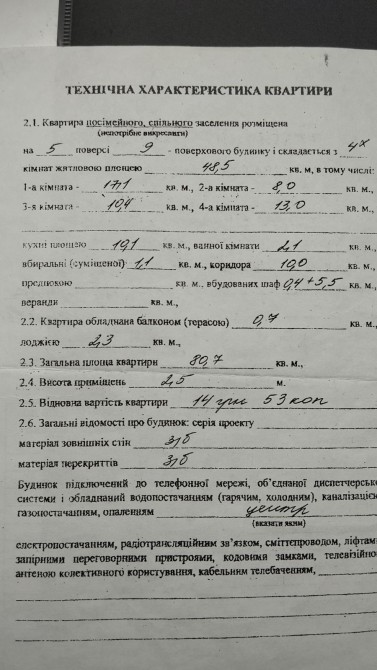 ТЕХНІЧНА ХАРАКТЕРИСТИКА КВАРТИРИ
2.1. Квартира посімейного, спільного заселення розміщена
(непотрібне викреслити)
на 5 поверсі 9 - поверхового будинку і складається з 4х
кімнат житловою площею 48,5 кв. м, в тому числі:
1-а кімната - 17,1 кв. м., 2-а кімната - 8,0 кв. м.,
3-я кімната - 10,4 кв. м., 4-а кімната - 13,0 кв. м.,
кухні площею 10,1 кв. м., ванної кімнати 2,1 кв. м.,
вбиральні (суміщеної) 1,1 кв. м., коридора 10,0 кв. м.,
передпокою кв. м., вбудованих шаф 0,4+5,5 кв. м.,
веранди кв. м.,
2.2. Квартира обладнана балконом (терасою) 0,7 кв. м.,
лоджією 2,3 кв. м.,
2.3. Загальна площа квартири 80,7 кв. м.,
2.4. Висота приміщень 2,5 м.
2.5. Відновна вартість квартири 14 грн 53 коп
2.6. Загальні відомості про будинок: серія проекту
матеріал зовнішніх стін з/б
матеріал перекриттів з/б
Будинок підключений до телефонної мережі, об'єднаної диспетчерсько
системи і обладнаний водопостачанням (гарячим, холодним), каналізаціє
газопостачанням, опаленням центр
(вказати яким)
електропостачанням, радіотрансляційним зв'язком, сміттєпроводом, ліфтами
запірними переговорними пристроями, кодовими замками, телевізійно
антеною колективного користування, кабельним телебаченням,